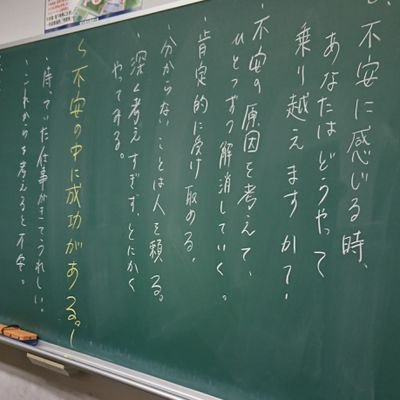 不安に感じる時、
あなたはどうやって
乗り越えますか?
・不安の原因を考えて、
ひとつずつ解消していく。
・肯定的に受け取める。
・分からないことは人を頼る。
・深く考えすぎず、とにかく
やってみる。
~不安の中に成功がある。~
・待っていた仕事がきてうれしい。
・これからを考えると不安。